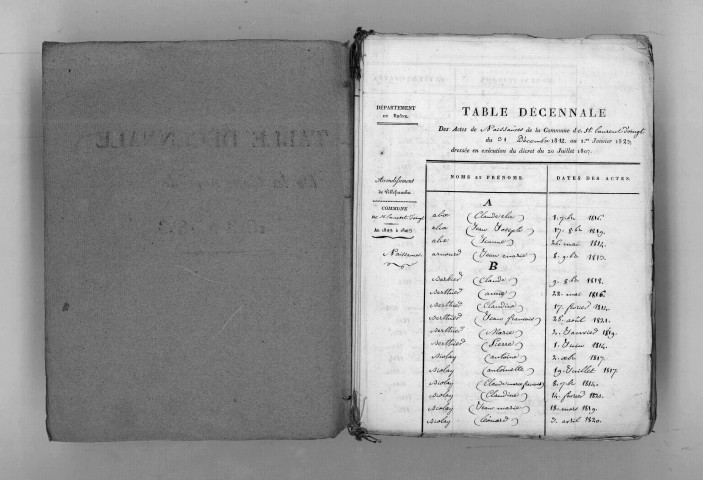 DÉPARTEMENT
DU RHÔNE.
TABLE DÉCENNALE
Des Actes de Naissances de la Commune de St Laurent d'oingt
du 31 Décembre 1812 au 1.er Janvier 1823,
dressée en exécution du décret du 20 Juillet 1807.
Arrondissement
de Villefranche
COMMUNE
de St Laurent d'oingt
An 1812 à 1823
Naissances
NOMS ET PRÉNOMS. DATES DES ACTES.
A
alix (Claude) 1. 7bre 1816.
alix (Jean Joseph) 17. 8bre 1819.
alix (Jeanne) 26. mai 1814.
arnoud (Jean marie) 8. 9bre 1813.
B
Barbier (Claude) 9. 8bre 1818.
Berthier (anne) 22. mai 1816.
Berthier (Claudine) 17. février 1814.
Berthier (Jean françois) 28. avril 1821.
Berthier (Marie) 2. Janvier 1819.
Berthier (Pierre) 1. Juin 1814.
Biolay (antoine) 2. 1817.
Biolay (antoinette) 19. Juillet 1817.
Biolay (Claude) 8. 7bre 1814.
Biolay (Claudine) 14. février 1821.
Biolay (Jean marie) 18. mars 1819.
Biolay (Léonard) 3. avril 1820.